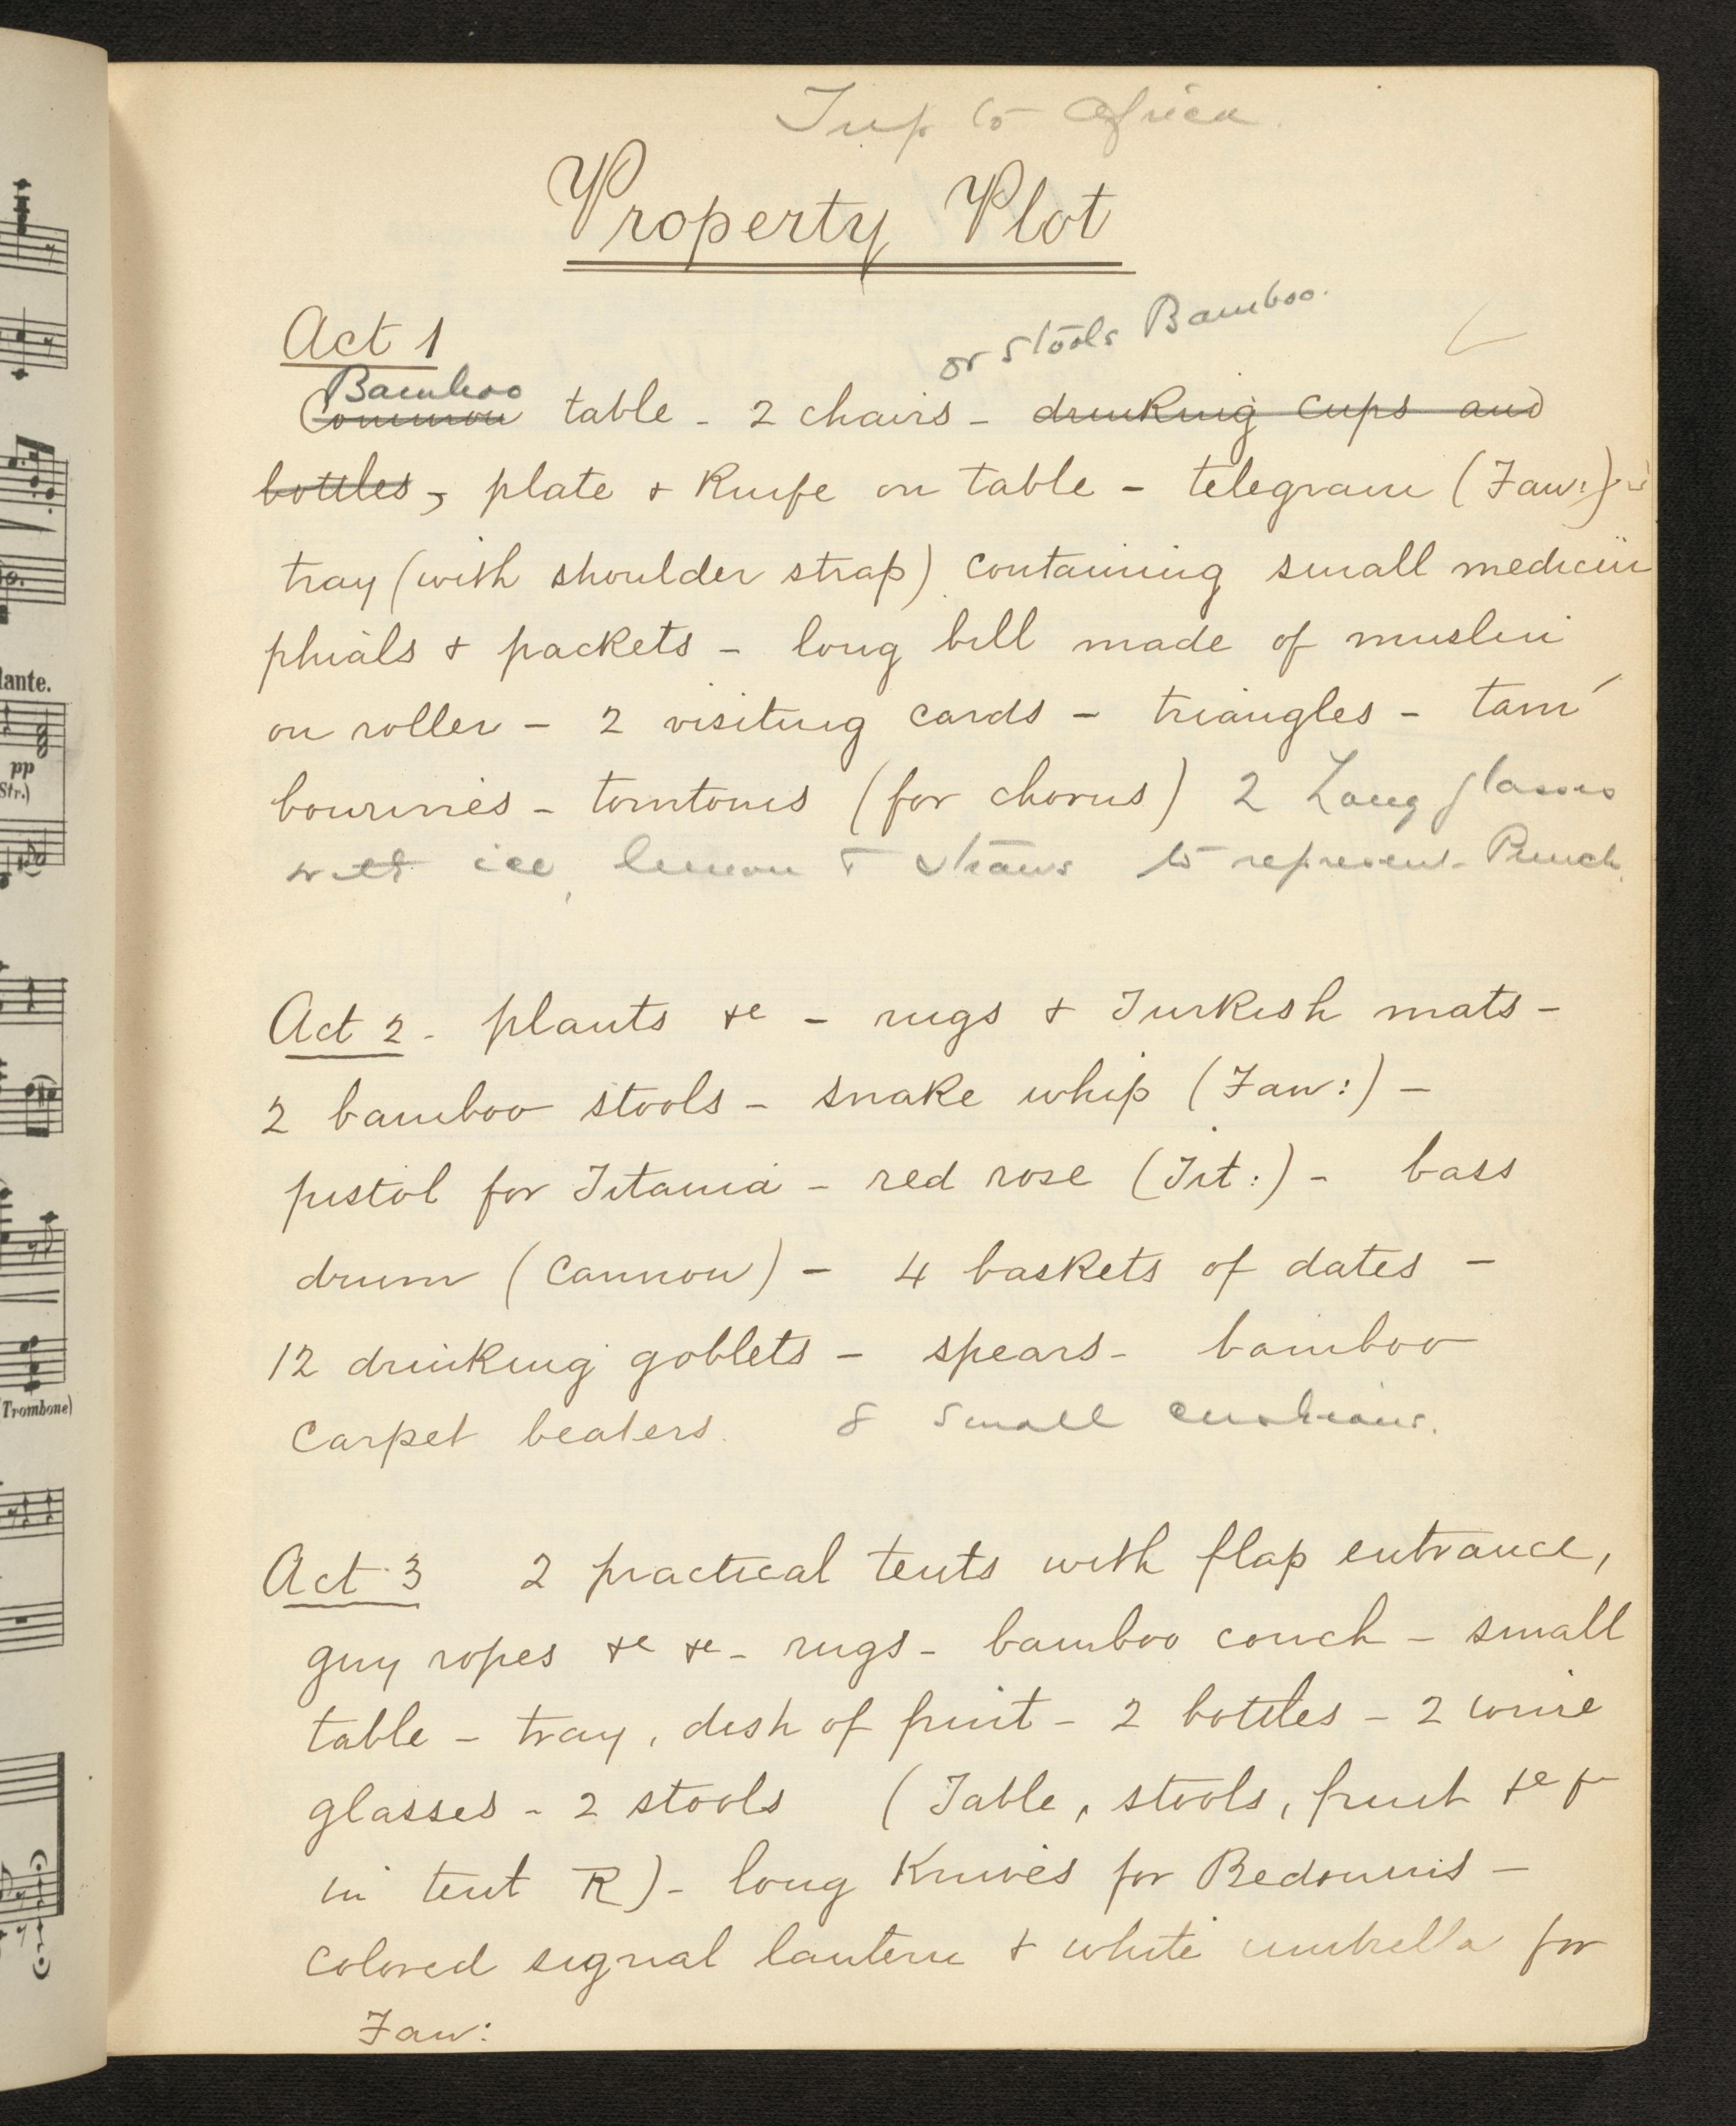 lante.
pp
Str.)
Trombone)
Trip to Africa.
Property Plot
Act 1
or stools Bamboo.
Bamboo
Common table - 2 chairs - drinking cups and
bottles, plate & Knife on table - telegram (Faw:)
tray (with shoulder strap) containing small medicin
phials & packets - long bill made of muslin
on roller - 2 visiting cards - triangles - tam
bourines - tomtoms (for chorus) 2 Long glasses
with ice, lemon & straws to represent Punch.
Act 2 - plants &c - rugs & Turkish mats -
2 bamboo stools - snake whip (Faw:) -
pistol for Titania - red rose (Tit:) - bass
drum (cannon) - 4 baskets of dates -
12 drinking goblets - spears - bamboo
carpet beaters. 8 small cushions.
Act 3 2 practical tents with flap entrance,
guy ropes &c &c - rugs - bamboo couch - small
table - tray, dish of fruit - 2 bottles - 2 wine
glasses - 2 stools (Table, stools, fruit &c
in tent R) - long Knives for Bedouins -
colored signal lantern & white umbrella for
Faw: